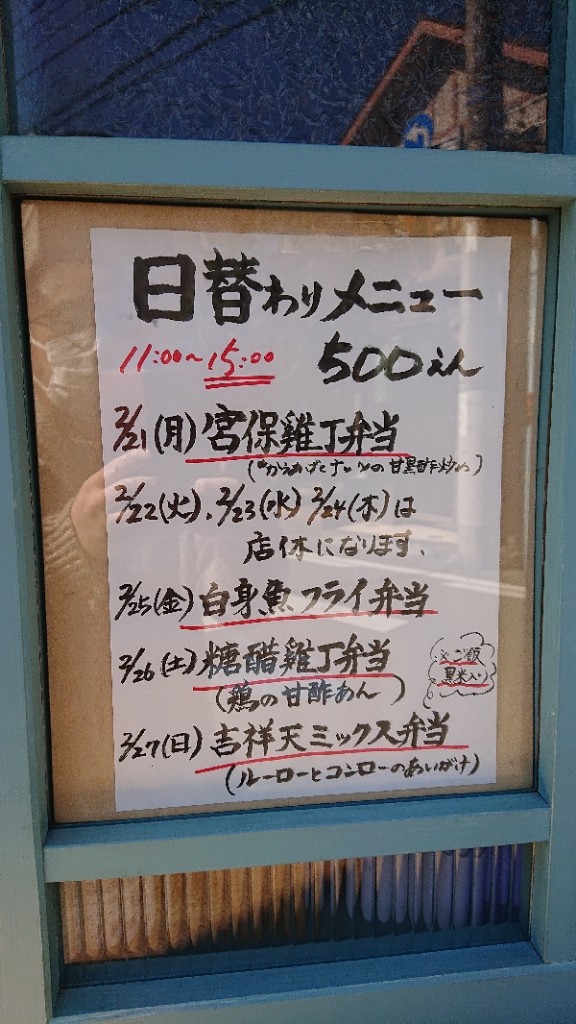 日替わりメニュー
11:00~15:00 500えん
2/21(月) 宮保雞丁弁当
(からあげとナッツの甘黒酢炒め)
2/22(火)、2/23(水) 2/24(木)は
店休になります.
2/25(金) 白身魚フライ弁当
2/26(土) 糖醋雞丁弁当
(鶏の甘酢あん)
※ご飯
黒米入り
2/27(日) 吉祥天ミックス弁当
(ルーローとコンローのあいがけ)